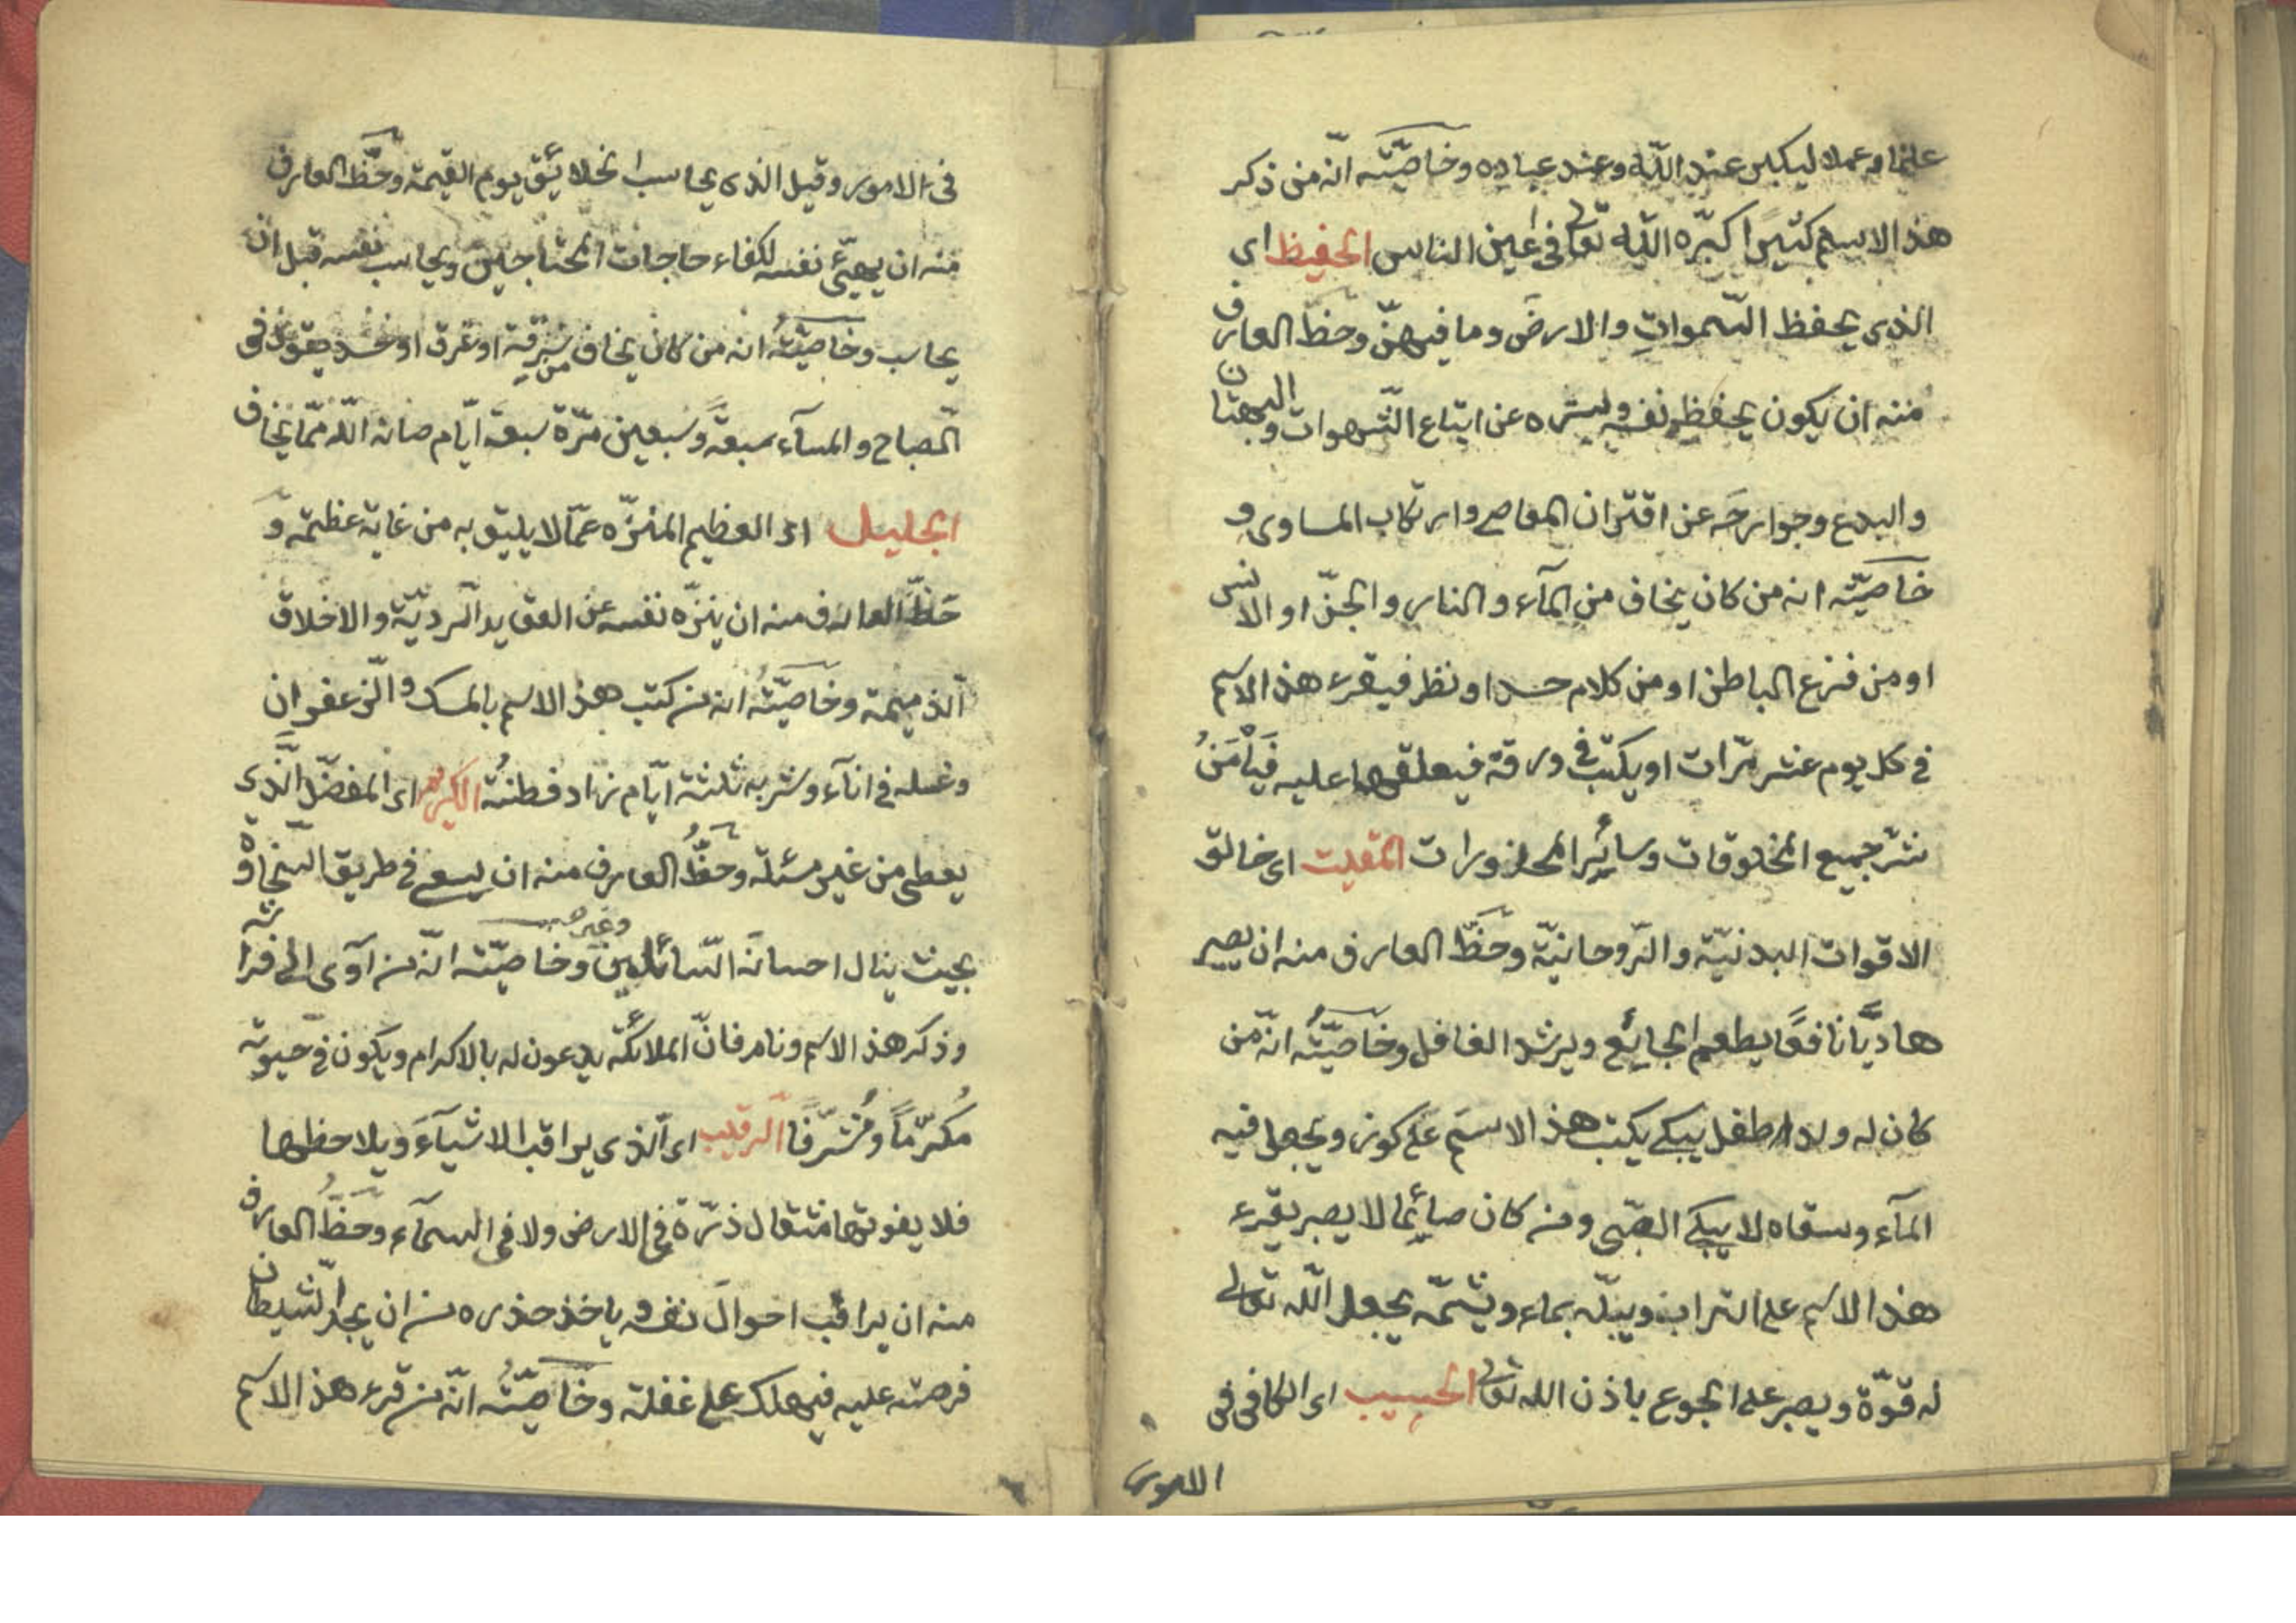 علما وعملا ليكبر عند الله وعند عباده وخاصيّته انّه من ذكر
هذ الاسم كثيرًا كبّره الله تعالى فى اعين الناس الحفيظ اى
الذى يحفظ السّموات والارض وما فيهنّ وحظّ العارف
منه ان يكون يحفظ نفسه ويستره عن اتباع الشّهوات والبهتان
والبدع وجوارحَه عن اقتران المعاصى وارتكاب المساوى و
خاصيّته انه من كان يخاف من المآء والنار والجنّ او الانس
او من فزع الباطن او من كلام حسد او نظر فيقرء هذ الاسم
فى كل يوم عشر مرّات او يكتب فى ورقة فيعلقها عليه فَيَأْمَنُ
شر جميع المخلوقات وسائر المحذورات المقيت اى خالق
الاقوات البدنيّة والرّوحانيّة وحَظّ العارف منه ان يصير
هاديًّا نافعًا يطعم الجائع ويرشد الغافل وخاصيّتُه انّه من
كان له ولد طفل يبكى يكتب هذ الاسم على كوز ويجعل فيه
المآء وسقاه لا يبكى الصّبى ومن كان صائمًا لا يصبر يقرء
هذ الاسم على التراب ويبلّه بماء ويشمّه يجعل الله تعالى
له قوّة ويصبر على الجوع باذن الله تعالى الحسيب اى الكافى فى
الامور
فى الامور وقيل الذى يحاسب الخلائق يوم القيمة وحَظّ العارف
منه ان يهيّئ نفسه لكفاء حاجات المحتاجين ويحاسب نفسه قبل ان
يحاسب وخاصيّتهُ انه من كان يخاف من سرقة او غرق او حسد يقول فى
الصّباح والمسآء سبعةً وسبعين مرّة سبعة ايّام صانه الله ممّا يخاف
الجليل اى العظيم المنزّه عمّا لا يليق به من غاية عظمته و
حَظّ العارف منه ان ينزّه نفسه عن العقايد الرديّة والاخلاق
الذميمة وخاصيّتُه انه من كتب هذ الاسم بالمسك والزّعفران
وغسله فى انآء وشربه ثلثة ايّام زاد فطنتُه الكريم اى المفضّل الّذى
يعطى من غير مسئلة وحَظُّ العارف منه ان يسعى فى طريق السّخاوة
بحيث ينال احسانه السّائلين وغيرهم وخاصيّته انّه من آوى الى فراشه
وذكر هذ الاسم ونام فانّ الملائكة يدعون له بالاكرام ويكون فى حيوته
مُكرّماً ومُشرّفًا الرقيب اى الّذى يراقب الاشيآءَ ويلاحظها
فلا يفوتها مثقال ذرّة فى الارض ولا فى السمآء وحَظُّ العارف
منه ان يراقب احوالَ نفسه وياخذ حذره من ان يجد الشيطان
فرصته عليه فيهلك على غفلة وخاصيّتُه انّه من قرء هذ الاسم